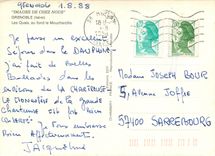 GRENOBLE 1.8.88
"IMAGES DE CHEZ NOUS"
GRENOBLE (Isère)
Les Quais au fond le Moucherotte
Je passe un excellent
Séjour dans le DAUPHINÉ
j'ai fait de Belles
Ballades dans le
massif de la CHARTREUSE
La
de la grande
Chartreuse est
Je vous embrasse
Bien Affectueusement
Jacqueline
Madame JOSEPH BOUR
5, Avenue Joffre
57400 SARREBOURG